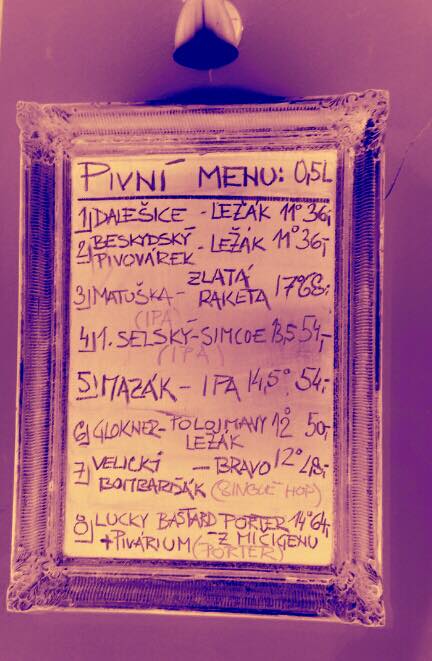 PIVNÍ MENU: 0,5L
1) DALEŠICE - LEŽÁK 11° 36,-
2) BESKYDSKÝ PIVOVÁREK - LEŽÁK 11° 36,-
3) MATUŠKA - ZLATÁ RAKETA 17° 68,-
(IPA)
4) 1. SELSKÝ - SIMCOE 13,5 54,-
(IPA)
5) MAZÁK - IPA 14,5° 54,-
6) GLOKNER - POLOTMAVÝ LEŽÁK 12° 50,-
7) VELICKÝ BOMBARĎÁK - BRAVO 12° 48,-
(SINGLE HOP)
8) LUCKY BASTARD PORTER 14° 64,-
+ PIVÁRIUM - Z MICIGENU
(PORTER)